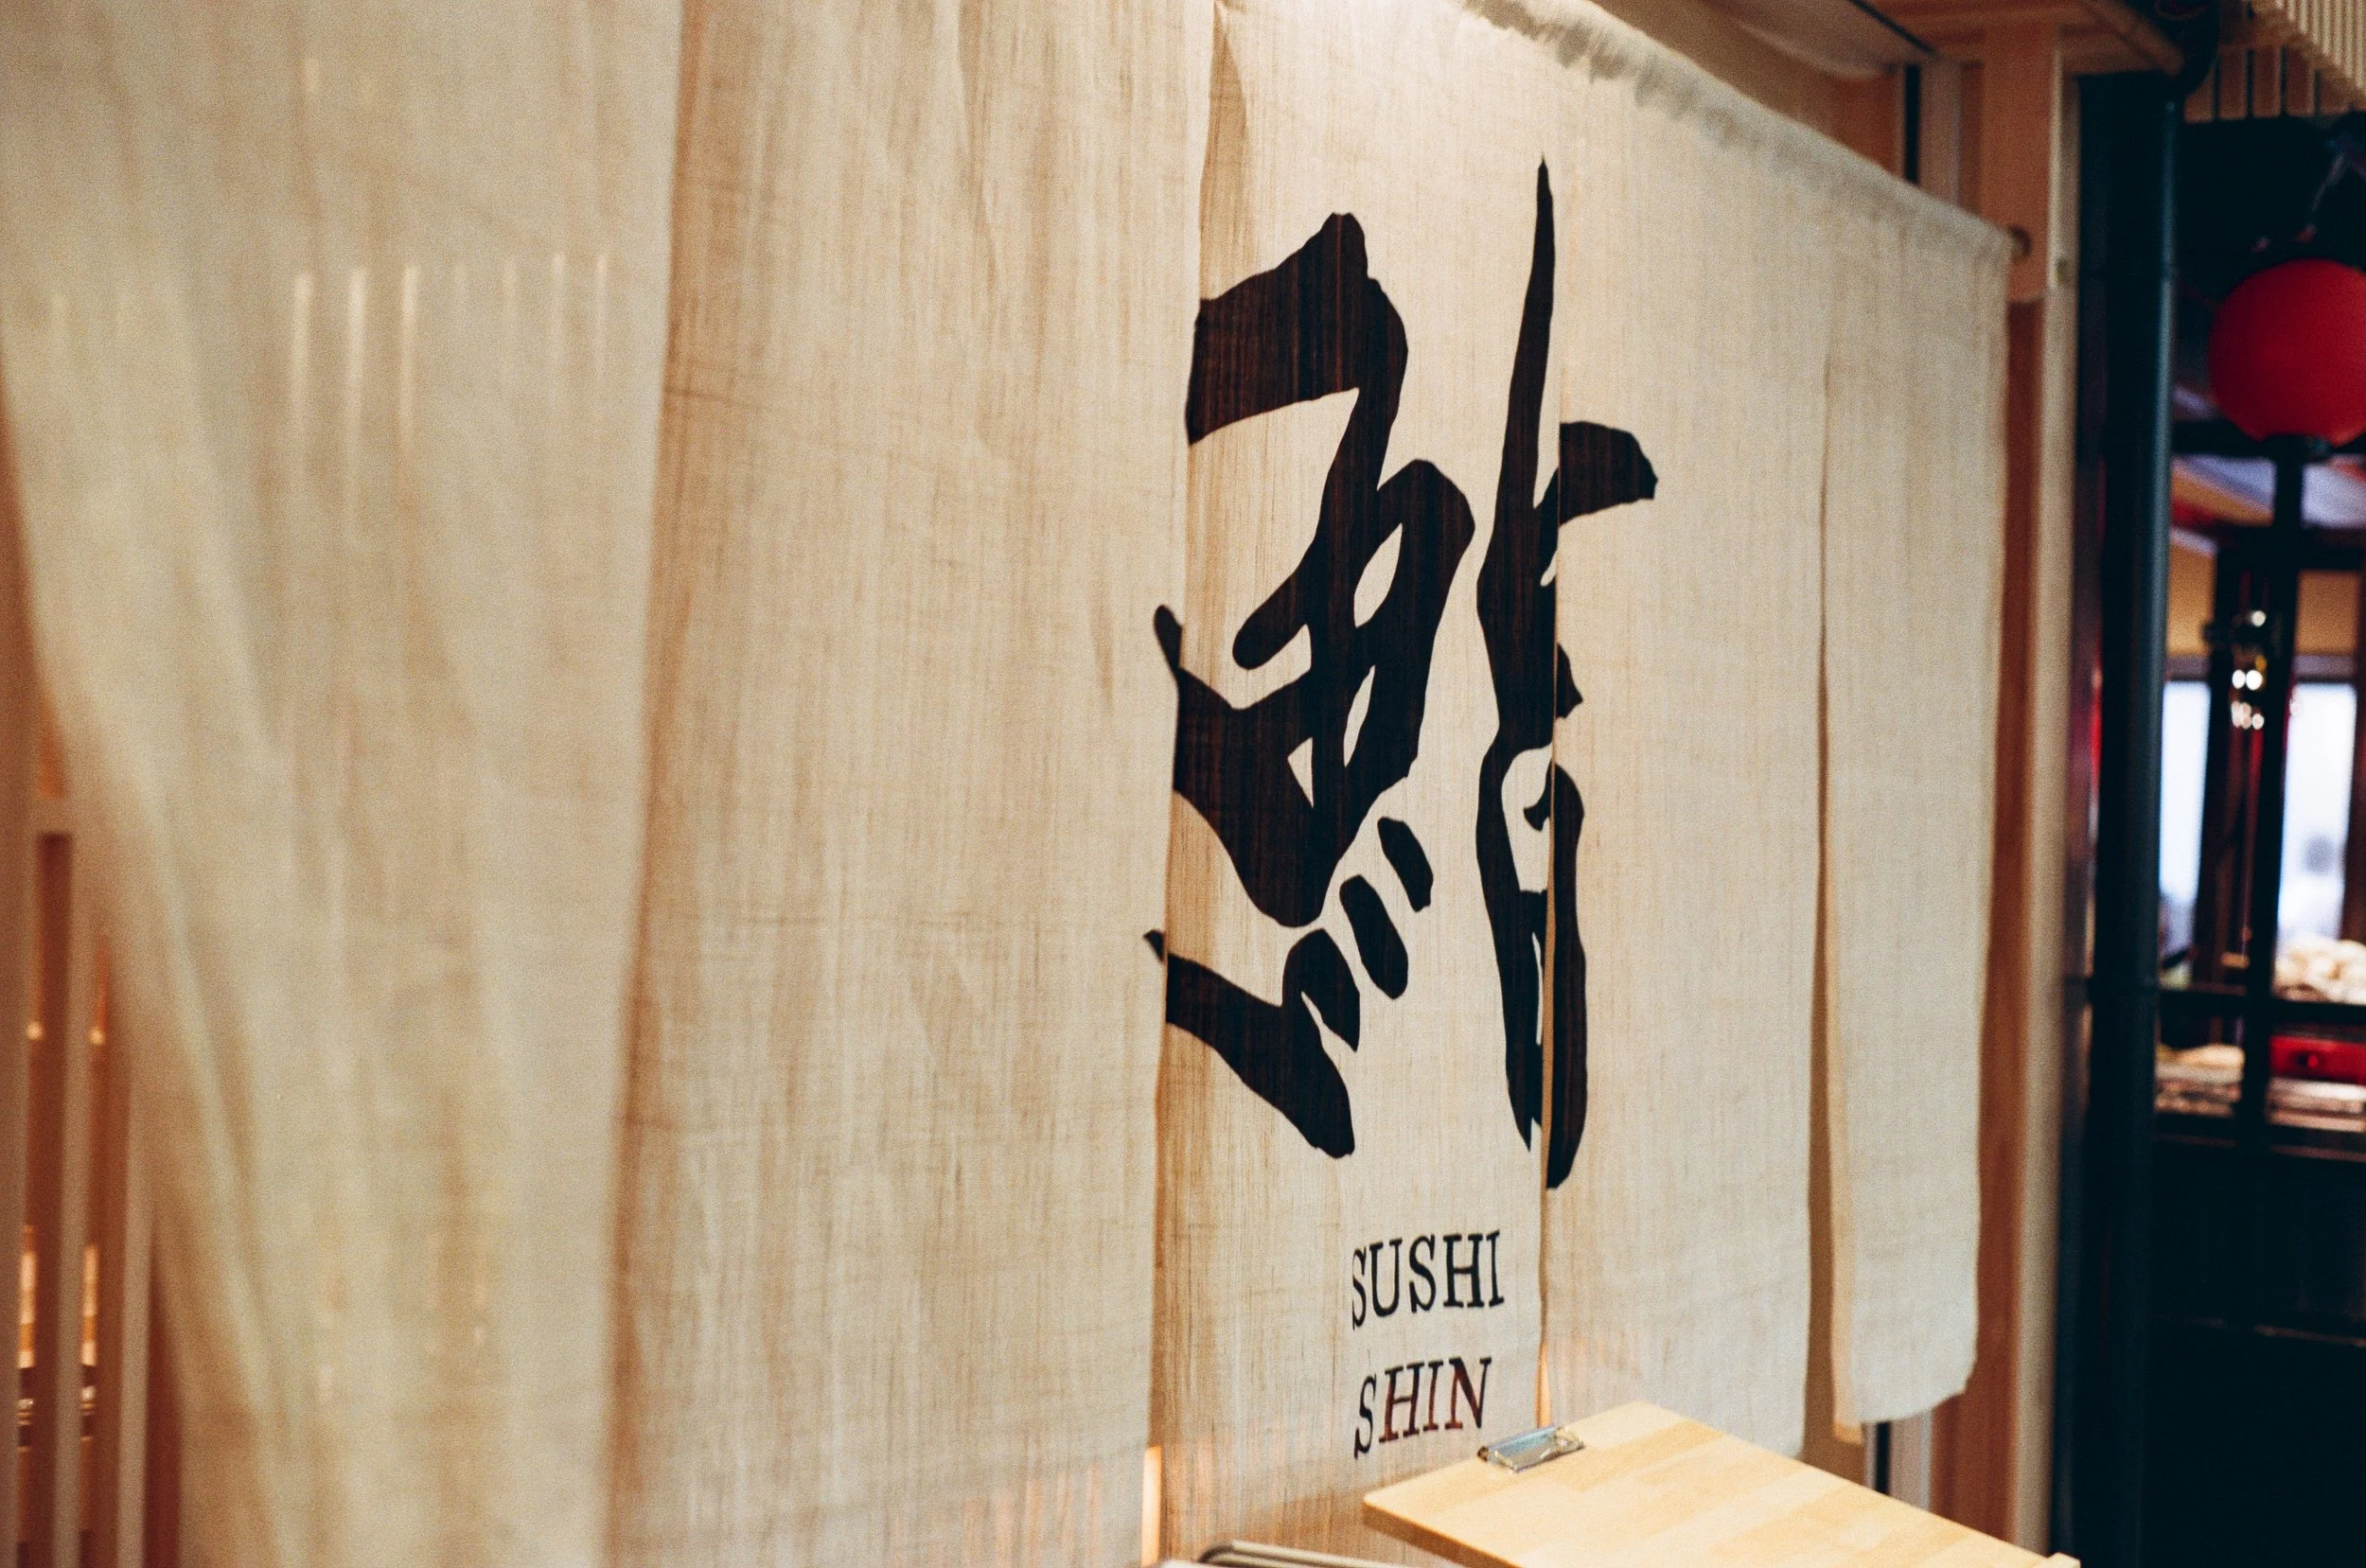 鮨
SUSHI
SHIN